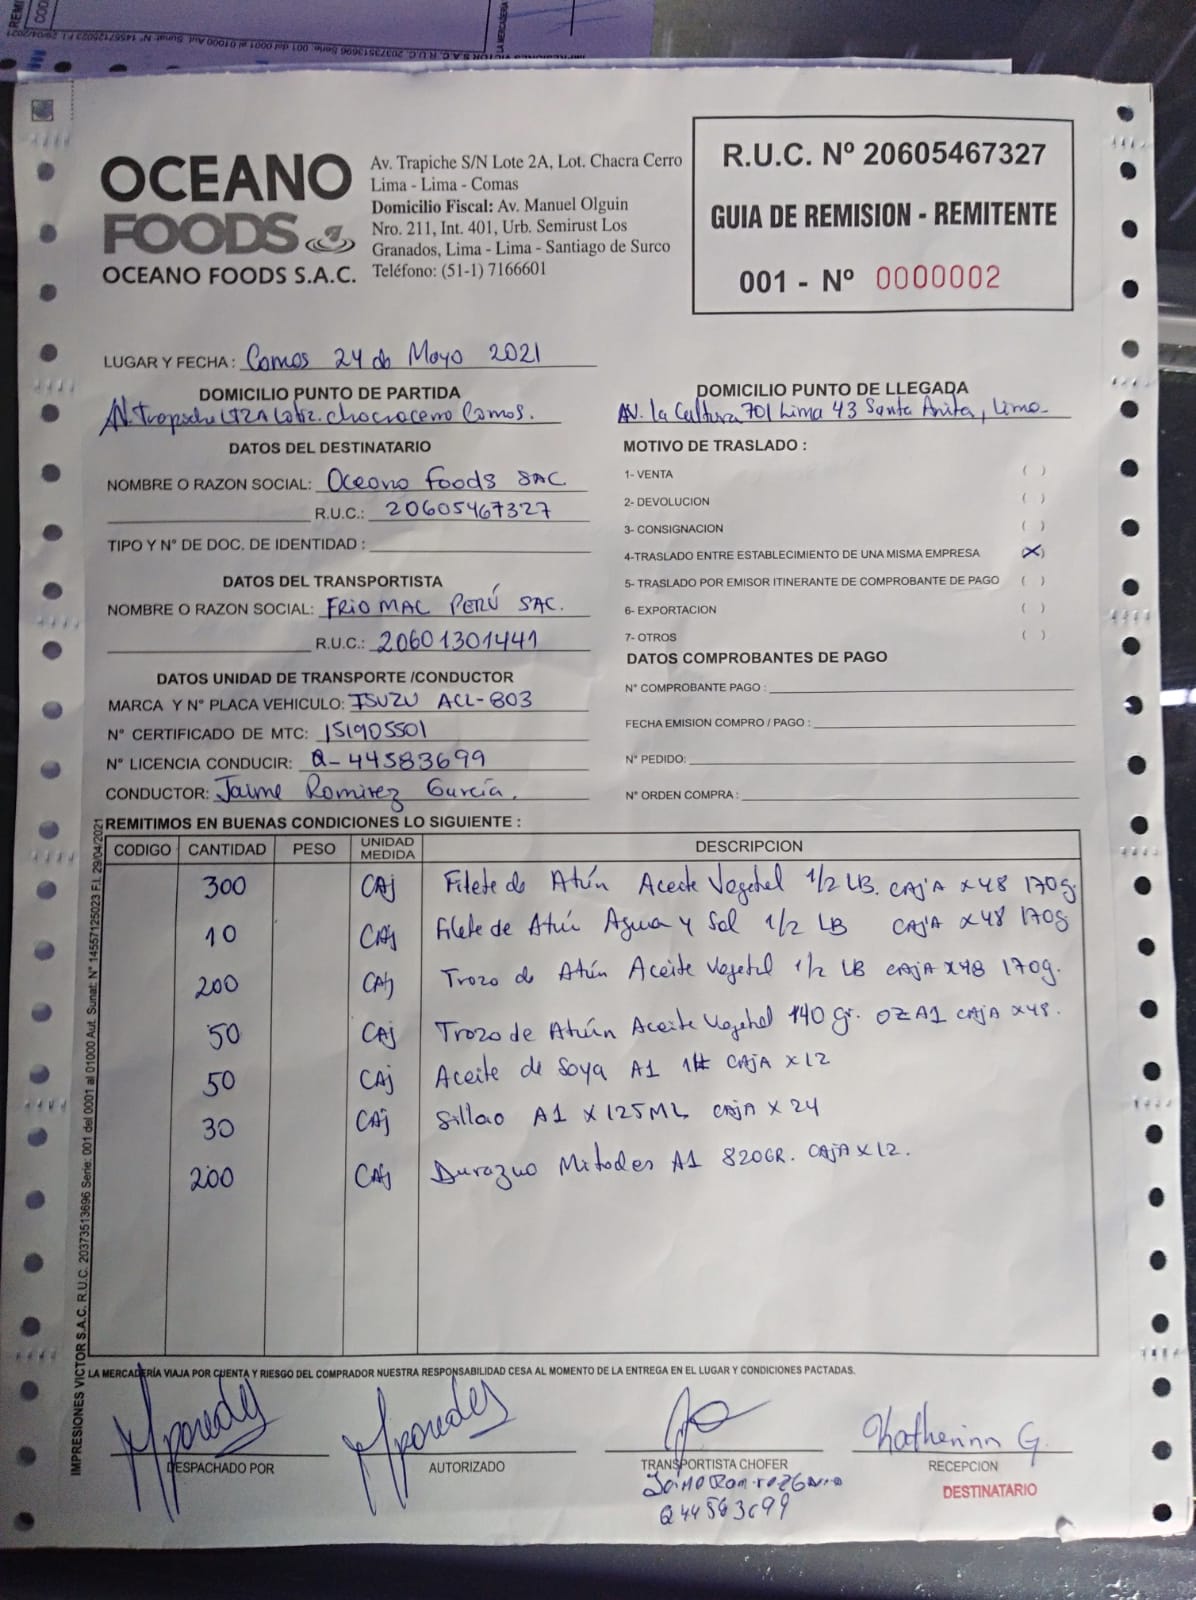 OCEANO
FOODS
OCEANO FOODS S.A.C.
Av. Trapiche S/N Lote 2A, Lot. Chacra Cerro
Lima - Lima - Comas
Domicilio Fiscal: Av. Manuel Olguin
Nro. 211, Int. 401, Urb. Semirust Los
Granados, Lima - Lima - Santiago de Surco
Teléfono: (51-1) 7166601
R.U.C. Nº 20605467327
GUIA DE REMISION - REMITENTE
001 - Nº 0000002
LUGAR Y FECHA : Comas 24 de Mayo 2021
DOMICILIO PUNTO DE PARTIDA
Av. Trapiche LT2A Lotiz. Chacracerro Comas.
DOMICILIO PUNTO DE LLEGADA
AV. la Cultura 701 Lima 43 Santa Anita, Lima
DATOS DEL DESTINATARIO
NOMBRE O RAZON SOCIAL: Oceano Foods SAC
R.U.C.: 20605467327
TIPO Y Nº DE DOC. DE IDENTIDAD :
DATOS DEL TRANSPORTISTA
NOMBRE O RAZON SOCIAL: FRIO MAC PERÚ SAC.
R.U.C.: 20601301441
DATOS UNIDAD DE TRANSPORTE /CONDUCTOR
MARCA Y Nº PLACA VEHICULO: ISUZU ACL-803
Nº CERTIFICADO DE MTC: 151905501
Nº LICENCIA CONDUCIR: Q-44583699
CONDUCTOR: Jaime Ramirez García.
MOTIVO DE TRASLADO :
1- VENTA ( )
2- DEVOLUCION ( )
3- CONSIGNACION ( )
4-TRASLADO ENTRE ESTABLECIMIENTO DE UNA MISMA EMPRESA (X)
5- TRASLADO POR EMISOR ITINERANTE DE COMPROBANTE DE PAGO ( )
6- EXPORTACION ( )
7- OTROS ( )
DATOS COMPROBANTES DE PAGO
Nº COMPROBANTE PAGO :
FECHA EMISION COMPRO / PAGO :
Nº PEDIDO:
Nº ORDEN COMPRA :
REMITIMOS EN BUENAS CONDICIONES LO SIGUIENTE :
CODIGO CANTIDAD PESO UNIDAD MEDIDA DESCRIPCION
300 CAj Filete de Atún Aceite Vegetal 1/2 LB. CAJA x48 170g.
10 CAj Filete de Atún Agua y Sal 1/2 LB CAJA x48 170g
200 CAj Trozo de Atún Aceite Vegetal 1/2 LB CAJA x48 170g.
50 CAj Trozo de Atún Aceite Vegetal 140 gr. OZ A1 CAJA x48.
50 CAj Aceite de Soya A1 CAJA x12
30 CAj Sillao A1 x 125ML CAJA x 24
200 CAj Durazno Mitades A1 820GR. CAJA x12.
LA MERCADERÍA VIAJA POR CUENTA Y RIESGO DEL COMPRADOR NUESTRA RESPONSABILIDAD CESA AL MOMENTO DE LA ENTREGA EN EL LUGAR Y CONDICIONES PACTADAS.
Mparedes
DESPACHADO POR
Mparedes
AUTORIZADO
TRANSPORTISTA CHOFER
Jaime Ramirez Garcia
Q44583699
Katherinn G.
RECEPCION
DESTINATARIO
IMPRESIONES VICTOR S.A.C. R.U.C. 20373513696 Serie: 001 del 0001 al 01000 Aut. Sunat: Nº 14557125023 F.I. 29/04/2021